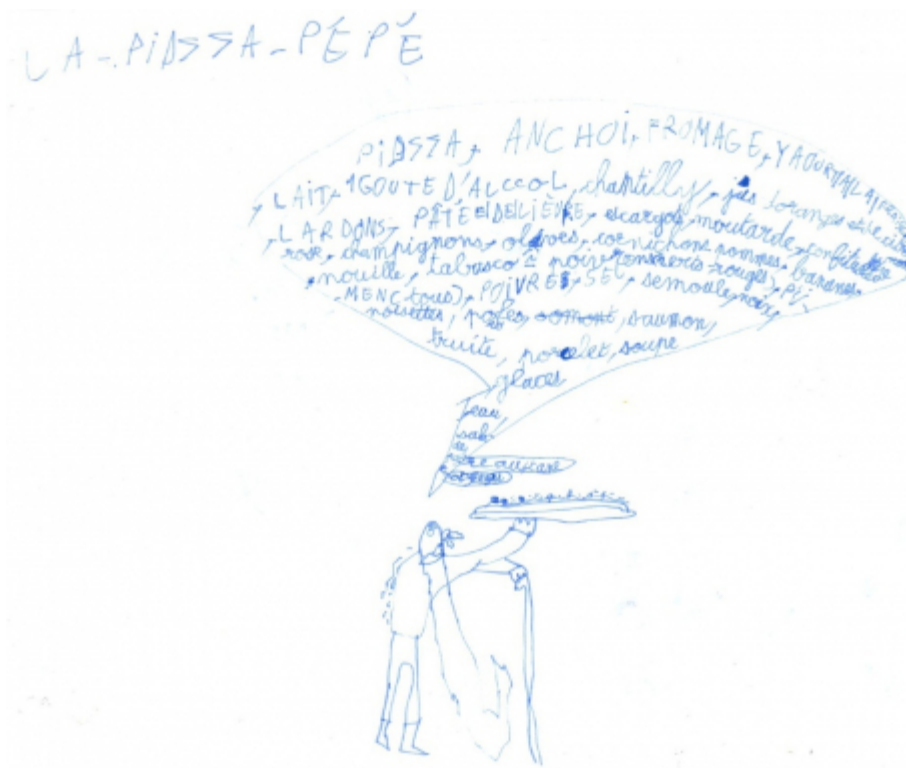 LA-PIASSA-PÉPÉ
PIASSA, ANCHOI, FROMAGE, YAOURT
LAIT, 1GOUTE D'ALCCOL, chantilly, jus
LARDONS, PÂTÉE DE LIÈVRE, escargot, moutarde, confiture
rose, champignons, olives, cornichons, pommes, bananes
nouille, tabasco noir rouges), PI-
MENC tous), POIVRE, SEL, semoule, noix,
noisettes, saumon,
truite, porcelet, soupe
glaces